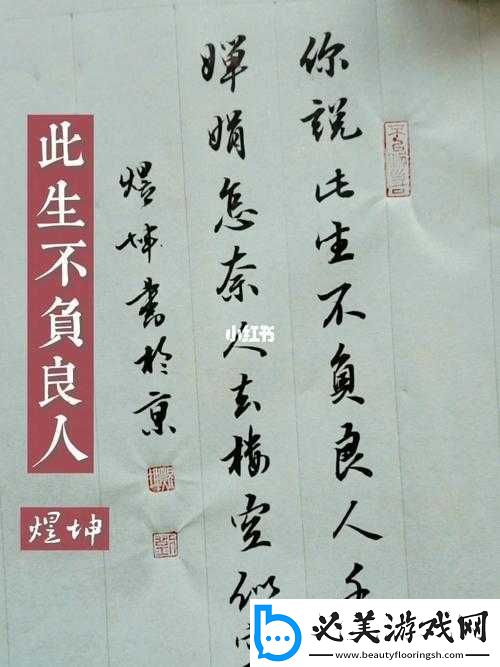 你說此生不負良人千
嬋娟怎奈人去樓空似
煜坤書於京
此生不負良人
煜坤
小红书
必美游戏网
www.beautyflooringsh.com